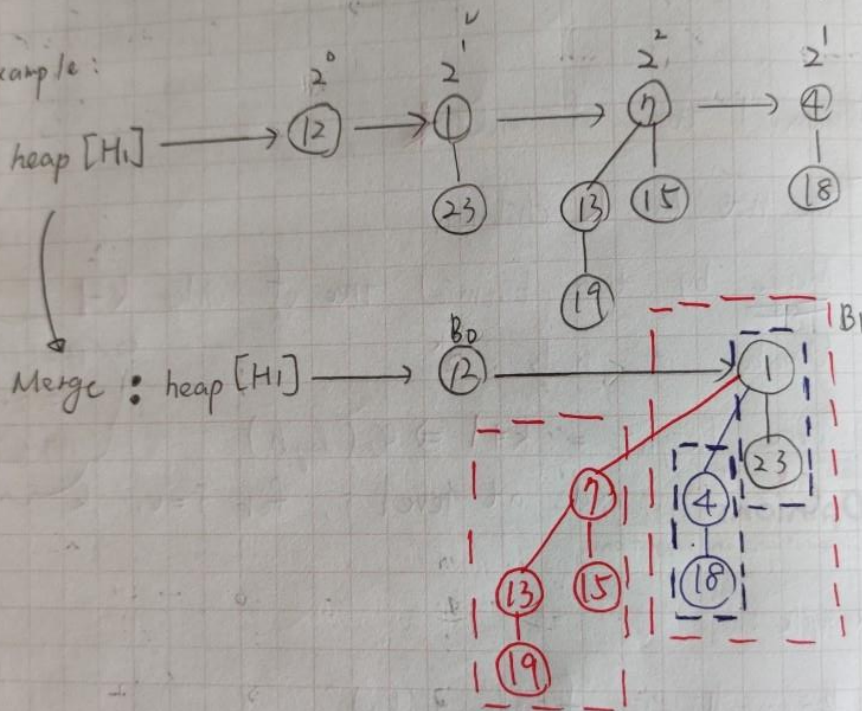 xample:
2⁰ 2¹ 2² 2¹
heap [H1] → 12 → 1 → 7 → 4
23 13 15 18
19
B0
Merge : heap [H1] → 12 → 1
23
7 4
13 15 18
19